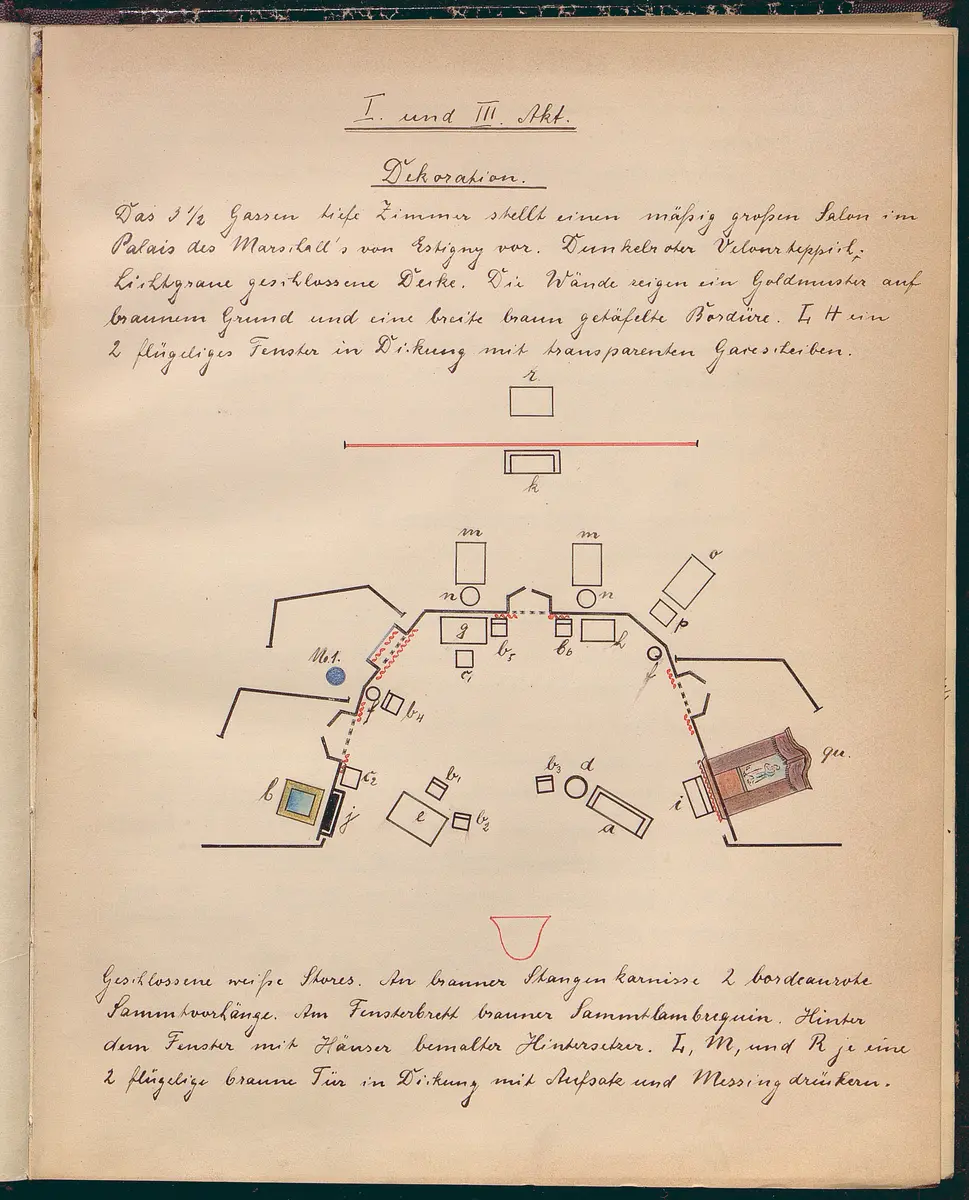 I. und III. Akt.
Dekoration.
Das 3 1/2 Gassen tiefe Zimmer stellt einen mäßig großen Salon im
Palais des Marschall's von Estigny vor. Dunkelroter Velourteppich,
Lichtgraue geschlossene Decke. Die Wände zeigen ein Goldmuster auf
braunem Grund und eine breite braun getäfelte Bordüre. L H ein
2 flügeliges Fenster in Dickung mit transparenten Gazescheiben.
r.
k
m m
o
n n
p
g h
b5 b6
No1. c1 f
f b4
c2 b3 d qu.
l b1
j e b2 a i
Geschlossene weiße Stores. An brauner Stangenkarnisse 2 bordeauxrote
Sammtvorhänge. Am Fensterbrett brauner Sammtlambrequin. Hinter
dem Fenster mit Häuser bemalter Hintersetzer. L, M, und R je eine
2 flügelige braune Tür in Dickung mit Aufsatz und Messingdrückern.